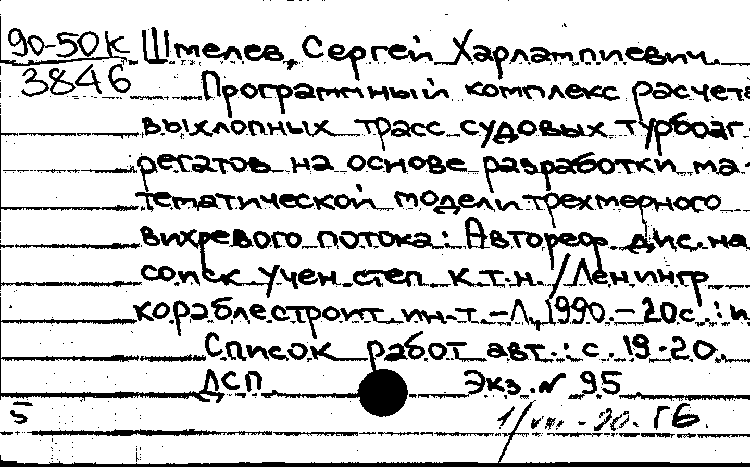 90-50К Шмелев, Сергей Харлампиевич.
3846 Программный комплекс расчета
выхлопных трасс судовых турбоаг
регатов на основе разработки ма-
тематической модели трехмерного
вихревого потока: Автореф. дис. на
соиск учен. степ к.т.н. / Ленингр
кораблестроит. ин.-т. -Л., 1990. - 20с. : и
Список работ авт.: с. 19-20.
ДСП. Экз. № 95
5 1/VIII - 90. ГБ.